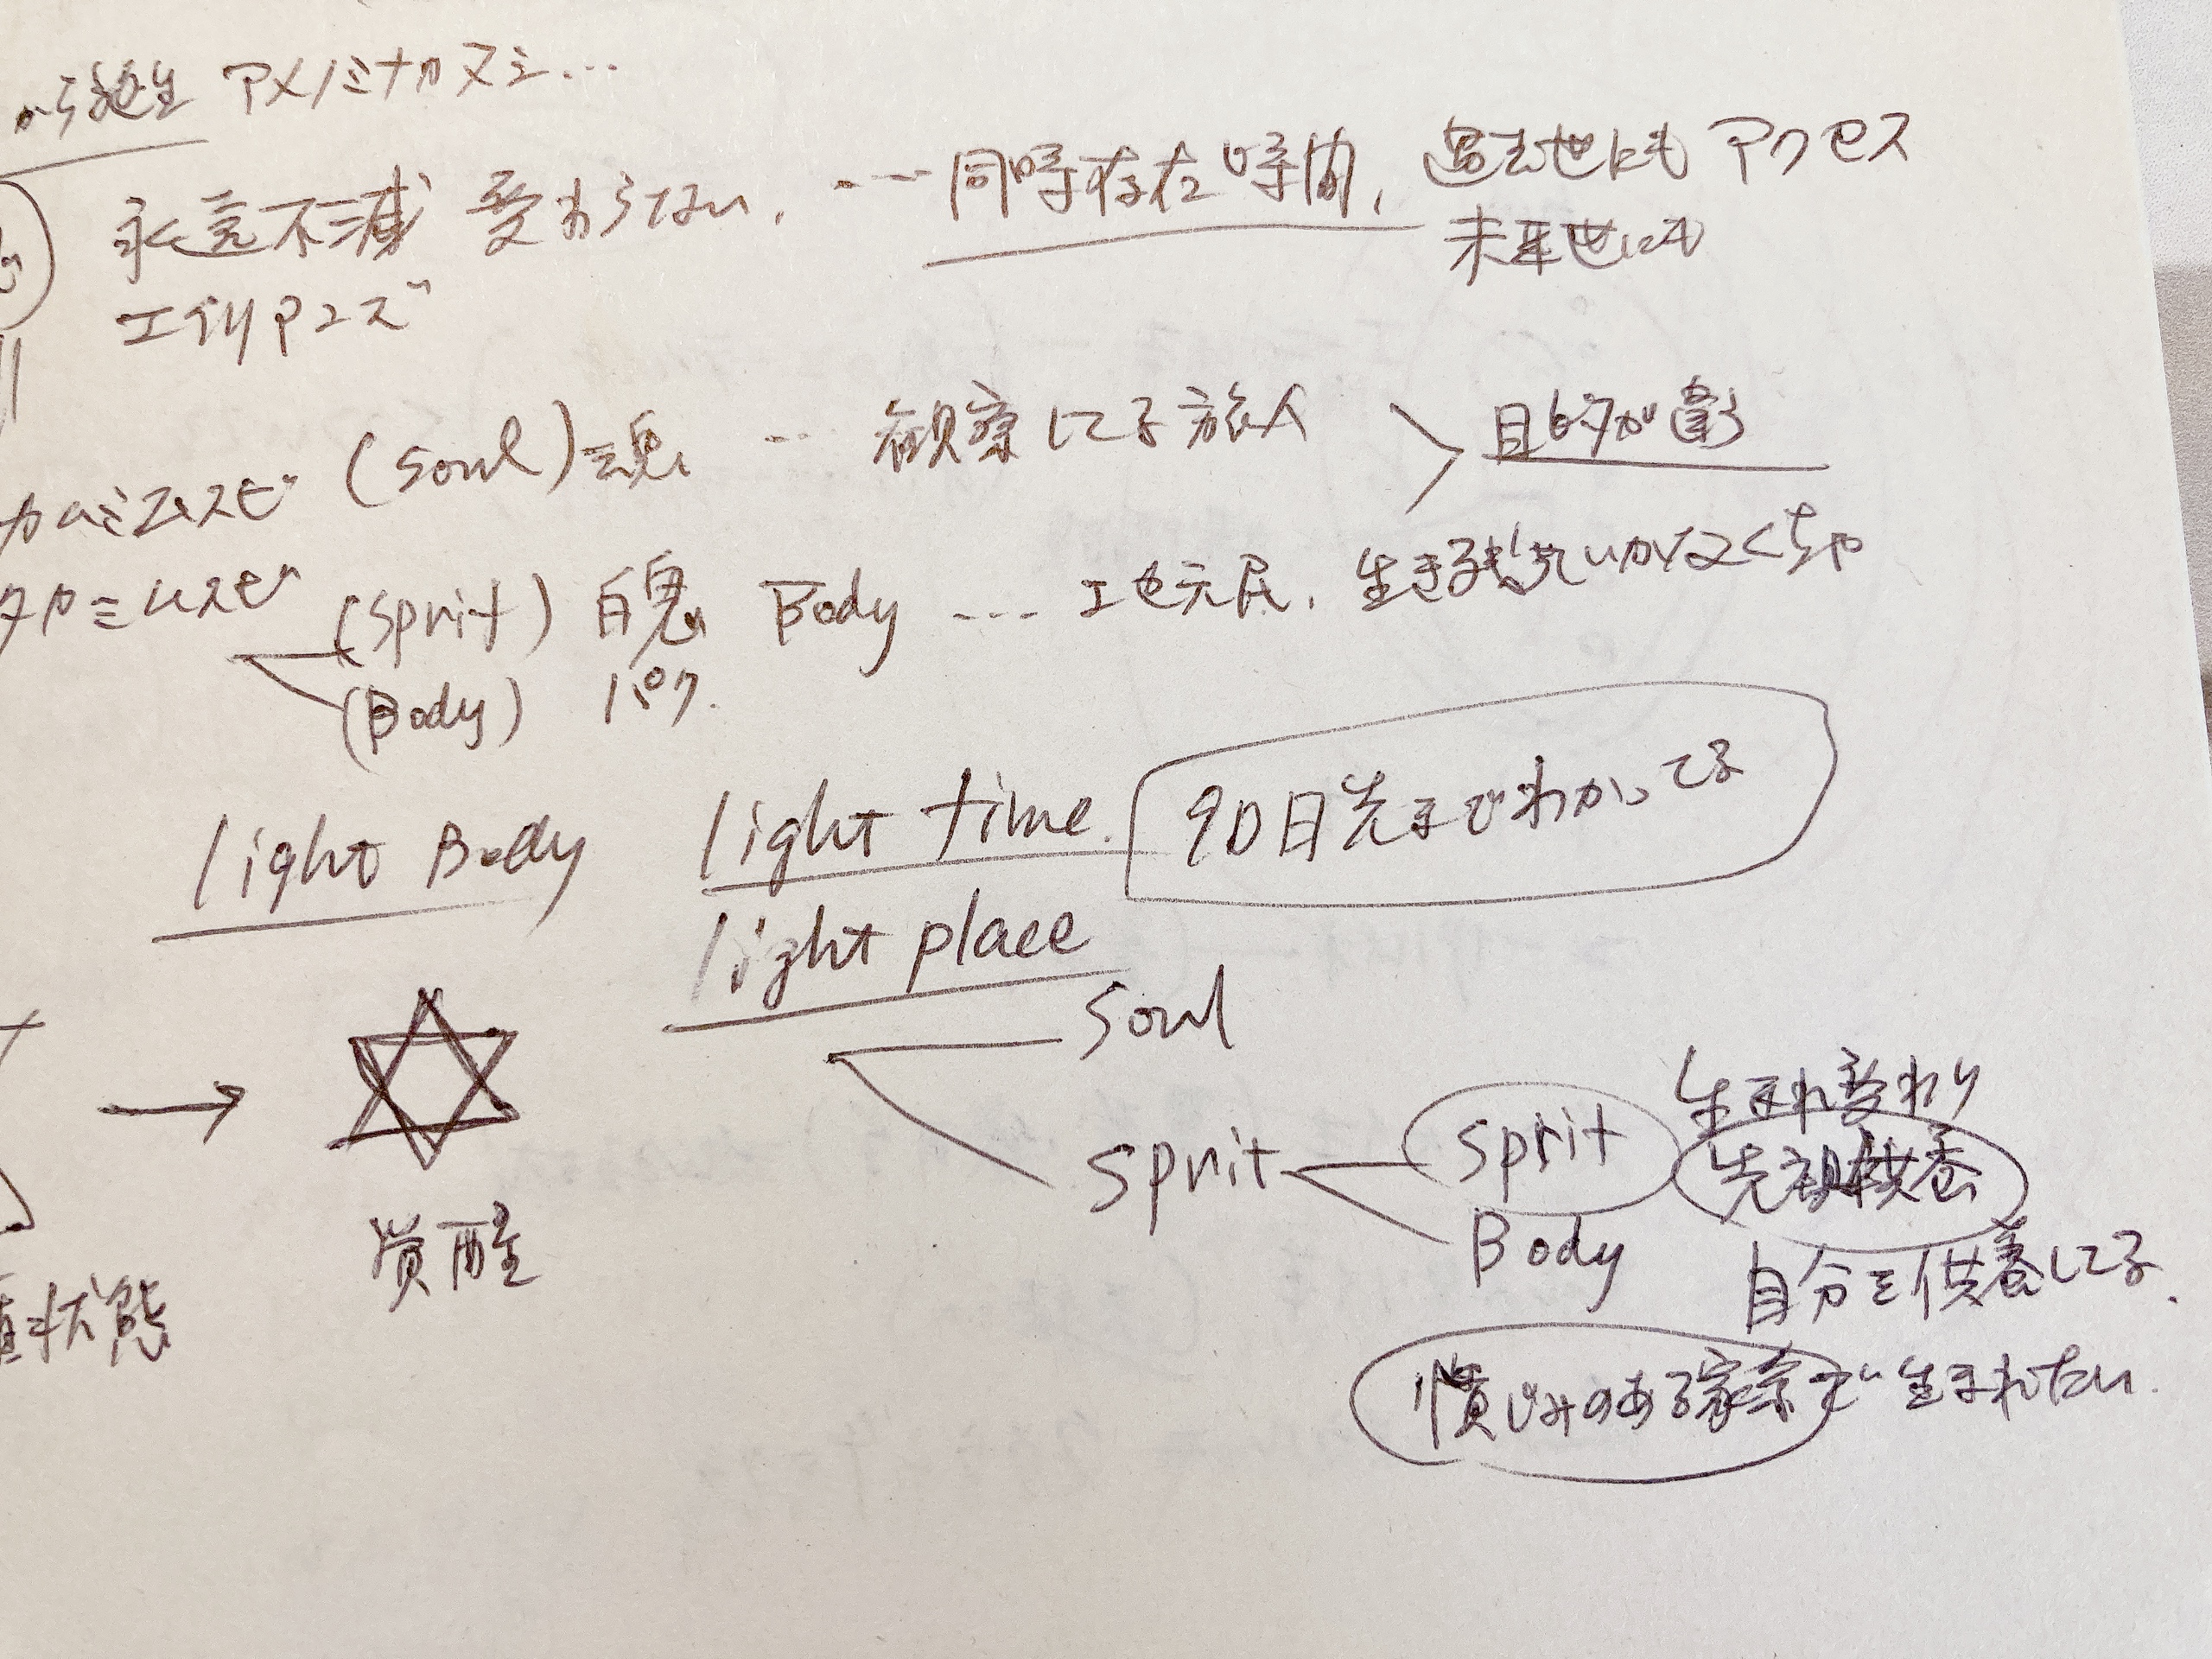 から誕生 アメノミナカヌシ…
永遠不滅 変わらない、…同時存在時間、過去世にもアクセス
未来世にも
エイリアンズ
(soul) 魂 … 観察してる旅人 > 目的が違う
カムミムスビ
タカミムスビ
(sprit) 白鬼 Body … 地元民、生き残っていかなくちゃ
(Body) パク.
light Body light time. 90日先までわかってる
light place
soul
→
sprit sprit 生まれ変わり
先祖供養
Body
覚醒
自分を供養してる.
状態
慣じみのある家系で 生まれたい.